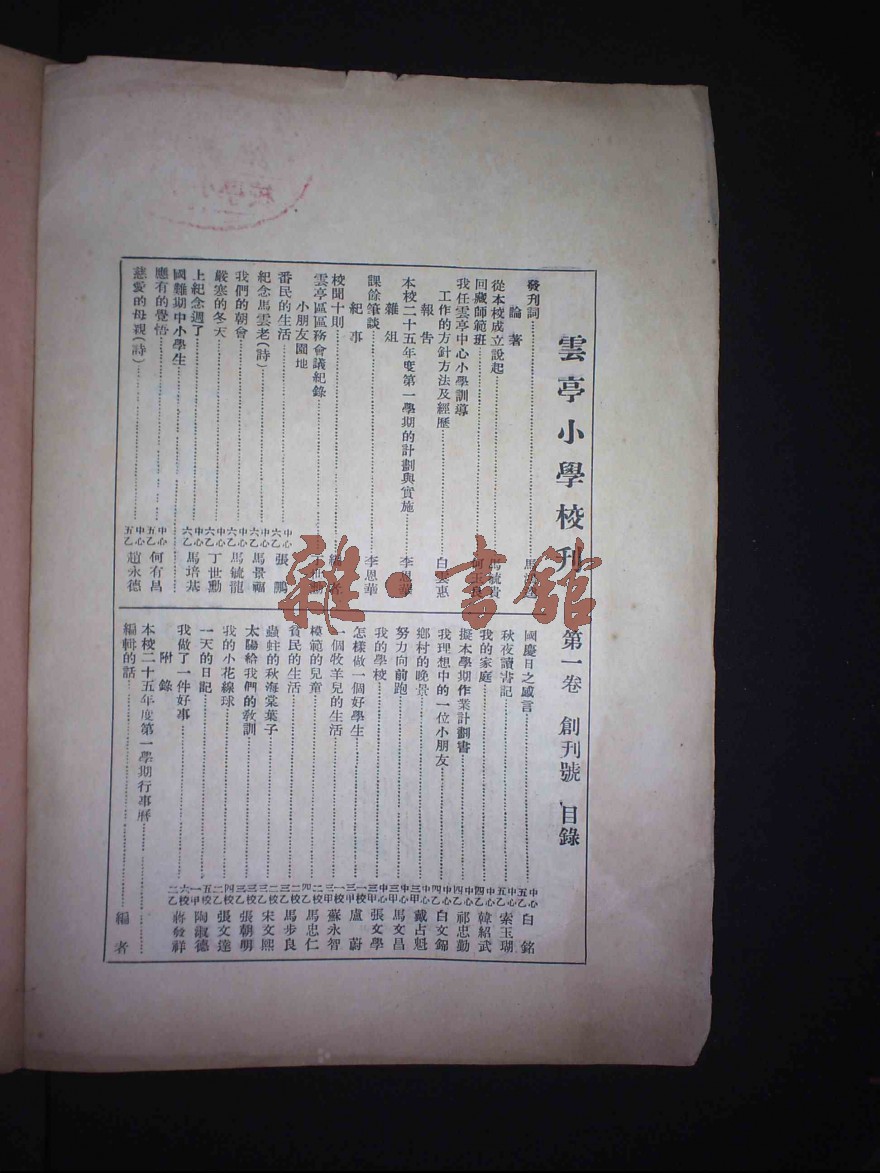 雲亭小學校刊 第一卷 創刊號 目錄
發刊詞
論著
從本校成立說起
回藏師範班
我任雲亭中心小學訓導
工作的方針方法及經歷 白雲惠
報告
本校二十五年度第一學期的計劃與實施 李恩華
雜俎
課餘筆談 李恩華
紀事
校聞十則
雲亭區區務會議紀錄
小朋友園地
番民的生活 中心六乙 張鵬
紀念馬雲老(詩) 中心六乙 馬景福
我們的朝會 中心六乙 馬毓龍
嚴寒的冬天 中心六乙 丁世勳
上紀念週了 中心六乙 馬培基
國難期中小學生
應有的覺悟 中心五乙 何有昌
慈愛的母親(詩) 中心五乙 趙永德
國慶日之感言 中心五乙 白銘
秋夜讀書記 中心五乙 索玉瑚
我的家庭 中心四乙 韓紹武
擬本學期作業計劃書 中心四乙 祁忠勤
我理想中的一位小朋友 中心四乙 白文錦
鄉村的晚景 中心三甲 戴占魁
努力向前跑 中心三甲 馬文昌
我的學校 中心三甲 張文學
怎樣做一個好學生 一校三甲 盧蔚
一個牧羊兒的生活 一校三甲 蘇永智
模範的兒童 二校四乙 馬忠仁
貧民的生活 二校三乙 馬步良
蟲蛀的秋海棠葉子 二校三乙 宋文熙
太陽給我們的教訓 三校三乙 張朝明
我的小花線球 四校二乙 張文達
一天的日記 五校一甲 陶淑德
我做了一件好事 六校二乙 蔣發祥
附錄
本校二十五年度第一學期行事曆
編輯的話 編者
雜·書館